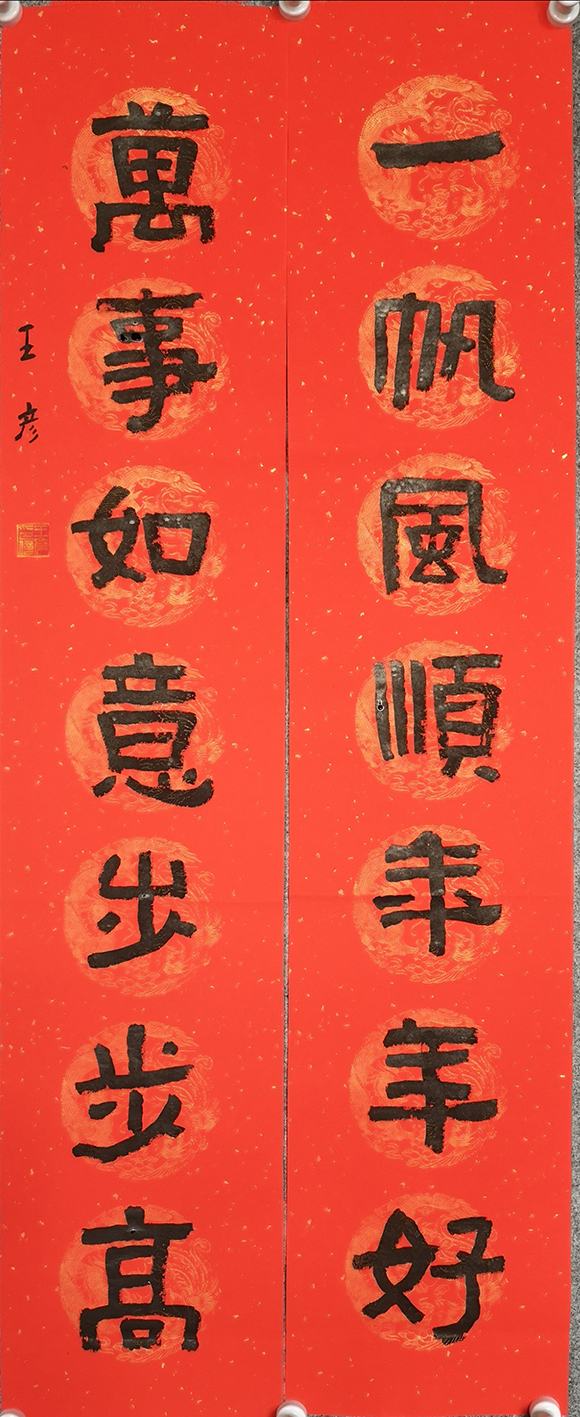 一帆風順年年好
萬事如意步步高
王彦